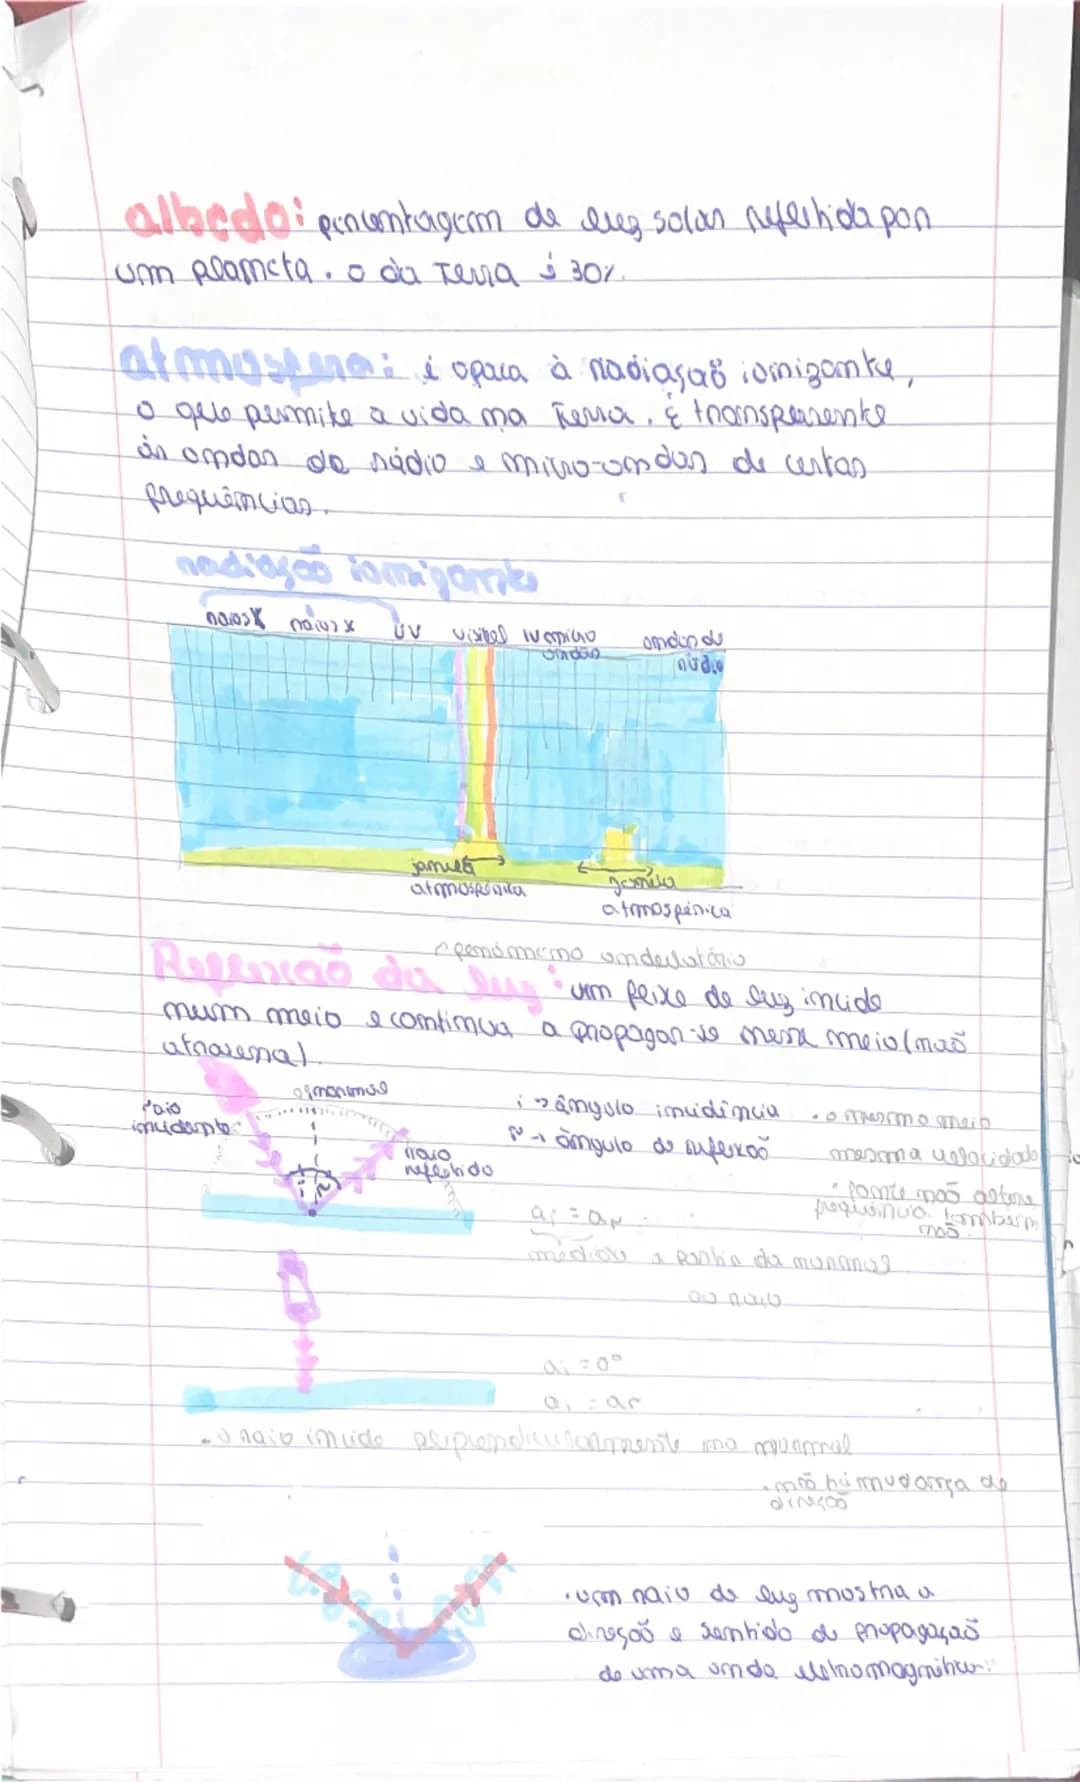 albedo: percentagem de luz solar refletida por
um planeta. o da Terra é 30%.
atmosfera: é opaca à radiação ionizante,
o que permite a vida na Terra. É transparente
às ondas de rádio e micro-ondas de certas
frequências.
radiação ionizante
raios X raios x UV visível IV micro ondas ondas de rádio
janela atmosférica
janela atmosférica
fenómeno ondulatório
Reflexão da luz: um feixe de luz incide
num meio e continua a propagar-se nesse meio (não
atravessa).
raio incidente
normal
raio refletido
i → ângulo incidência
r → ângulo de reflexão
• o mesmo meio
mesma velocidade
• fonte não altera
frequência também não
ai = ar
medidos a partir da normal
ao raio
ai = 0°
ai = ar
- o raio incide perpendicularmente na normal
• não há mudança de
direção
• um raio de luz mostra a
direção e sentido de propagação
de uma onda eletromagnética.